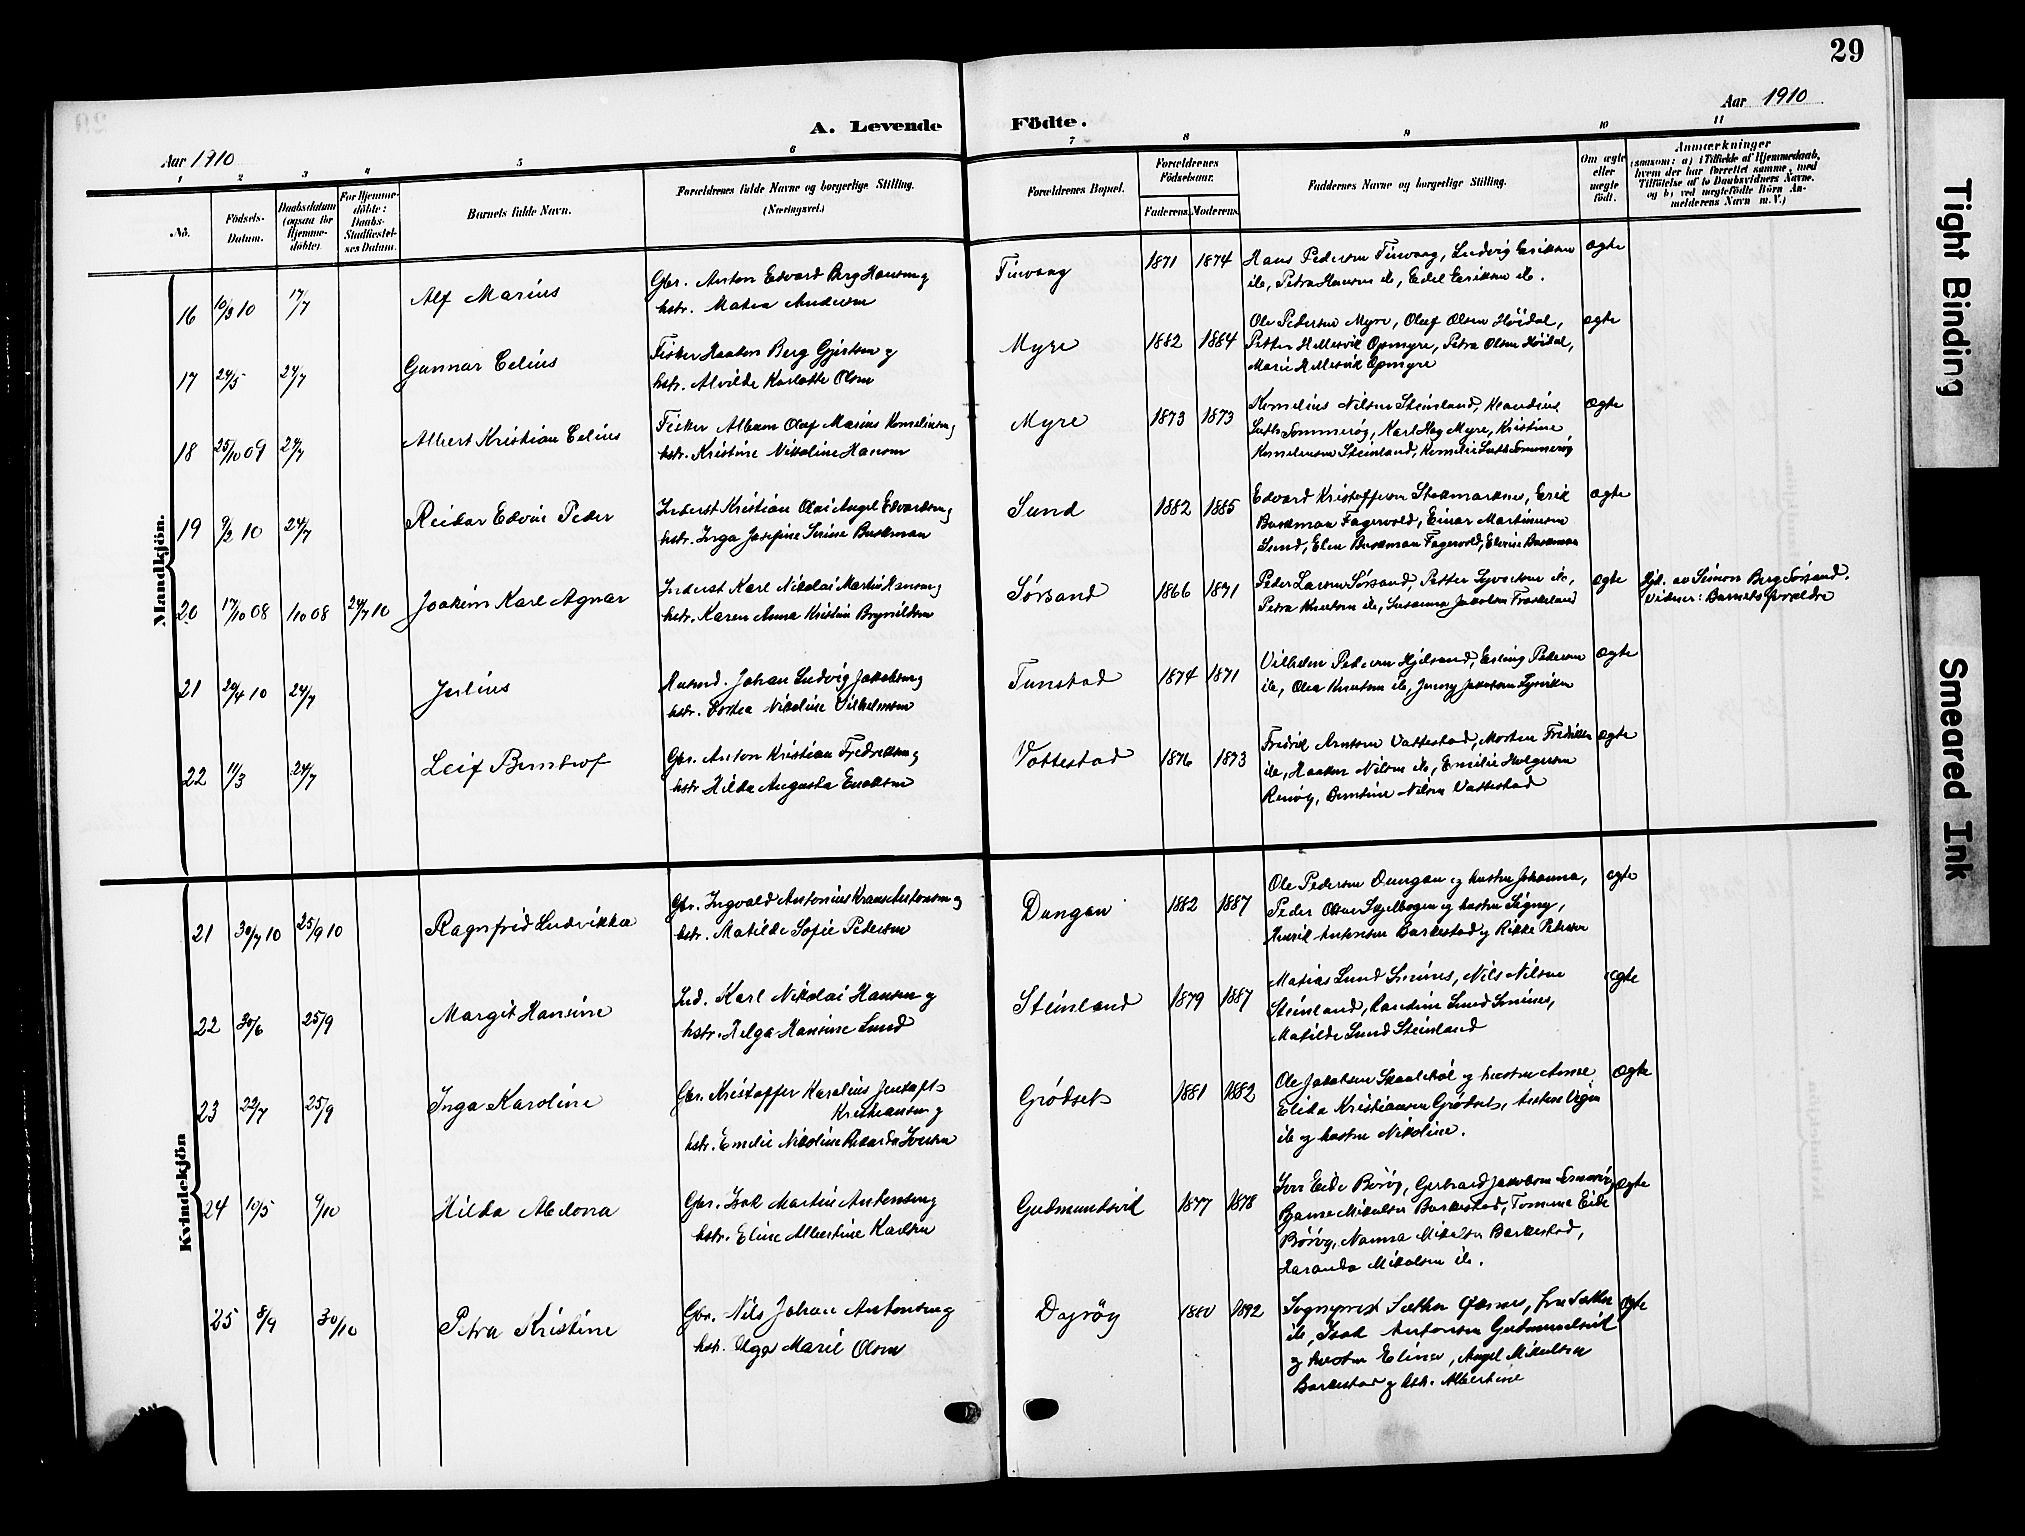 29
Aar 1910
A. Levende Födte.
Aar 1910
1 2 3 4 5 6 7 8 9 10 11
No.
Födsels-
Datum.
Daabsdatum
(ogsaa for
Hjemme-
döbte)
For Hjemme-
döbte:
Daabs-
Stadfæstel-
ses Datum.
Barnets fulde Navn.
Forældrenes fulde Navne og borgerlige Stilling.
(Næringsvei.)
Forældrenes Bopæl.
Forældrenes
Födselsaar.
Faderens. Moderens.
Faddernes Navne og borgerlige Stilling.
Om ægte
eller
uægte
födt.
Anmærkninger
(saasom: a) i Tilfælde af Hjemmedaab,
hvem der har forrettet samme, med
Tilföielse af to Daabsvidners Navne,
og b) ved uægtefödte Börn An-
melderens Navn m. V.)
Mandkjön.
16 10/3 10 17/7 Alf Marius
Gbr. Anton Edvard Berg Hansen og
hstr. Matea Andersen
Tinvaag 1871 1874
Hans Pedersen Tinvaag, Ludvig Eriksen
ib, Petra Hansen ib, Edel Eriksen ib.
ægte
17 24/5 24/7 Gunnar Celius
Fisker Haakon Berg Gjertsen og
hstr. Alvilde Karlotte Olsen
Myre 1882 1884
Ole Pedersen Myre, Oluf Olsen Höidal,
Petter Hellesvik Opmyre, Petra Olsen Höidal,
Marie Hellesvik Opmyre
ægte
18 25/10 09 24/7 Albert Kristian Celius
Fisker Album Olaf Marius Kornelius og
hstr. Kristine Nikoline Hansen
Myre 1873 1873
Kornelius Nilsen Steinland, Klaudius
Karl Hog Myre, Kristine
Kornelius Steinland,
ægte
19 9/2 10 24/7 Reidar Edvin Peder
Inderst Kristian Olai Angel Edvardsen og
hstr. Inga Josefine Serine Buschman
Sund 1882 1885
Edvard Kristoffersen Stokmarknes, Erik
Buschman Fagervold, Einar Martinusen
Sund, Elen Buschman Fagervold,
ægte
20 17/10 08 1/10 08 24/7 10 Joakim Karl Agnar
Inderst Karl Nikolai Martin Hansen og
hstr. Karen Anna Kristin Brynildsen
Sörsand 1866 1871
Peder Larsen Sörsand, Petter Syversen ib,
Petra Knutsen ib, Susanna Jakobsen
ægte
Hjd. av Simon Berg Sörsand.
Vidner: Barnets forældre
21 20/4 10 24/7 Julius
Husmd. Johan Ludvig Jakobsen og
hstr. Dortea Nikoline Vilhelmsen
Tunstad 1874 1871
Vilhelm Pedersen Hjelsand, Erling Pedersen
ib, Olea Knutsen ib, Jenny Jakobsen
ægte
22 11/3 24/7 Leif Berntrof
Gbr. Anton Kristian Fredriksen og
hstr Hilda Augusta Enoksen
Vottestad 1876 1873
Fredrik Arntsen Vottestad, Morten Fredriksen
ib, Haakon Nilsen ib, Emilie Holgersen
Bentine Nilsen Vottestad
ægte
Kvindekjön
21 30/7 10 25/9 10 Ragnfrid Ludvikka
Gbr. Ingvald Antonius Krans Antonsen og
hstr. Matilde Sofie Pedersen
Dungan 1882 1887
Ole Pedersen Dungan og hustru Johanna,
Peder Olsen Skjelbogen og hustru Signy,
Henrik Antonsen Barkestad og Rikke Pedersen
ægte
22 30/6 25/9 Margit Hansine
Ind. Karl Nikolai Hansen og
hstr. Helga Hansine Lund
Steinland 1879 1887
Matias Lund Smines, Nils Nilsen
Steinland, Randine Lund Smines,
Matilde Lund Steinland
ægte
23 22/7 25/9 Inga Karoline
Gbr. Kristoffer Karolius Jentoft
Kristiansen og
hstr. Emelie Nikoline Rikarda Iversen
Grödset 1881 1882
Ole Jakobsen Skaalebol og hustru Anne
Elida Kristiansen Grödset,
ib og hustru Nikoline.
ægte
24 10/5 9/10 Hilda Aledona
Gbr. Isak Martin Antonsen og
hstr. Eline Albertine Karlsen
Gudmundsvik 1877 1878
Iver Eide Börög, Gerhard Jakobsen
Bjarne Mikalsen Barkestad, Tomine Eide
Börög, Nanna Mikalsen Barkestad,
Haranda Mikalsen ib.
ægte
25 8/9 30/10 Petra Kristine
Gbr. Nils Johan Antonsen og
hstr. Olga Marie Olsen
Dyröy 1880 1892
Sogneprest Sæther Öksnes, fru Sæther
ib, Isak Antonsen Gudmundsvik
og hustru Elina, Angel Mikalsen
Barkestad og hstr. Albertine
ægte
Tight Binding
Smeared Ink